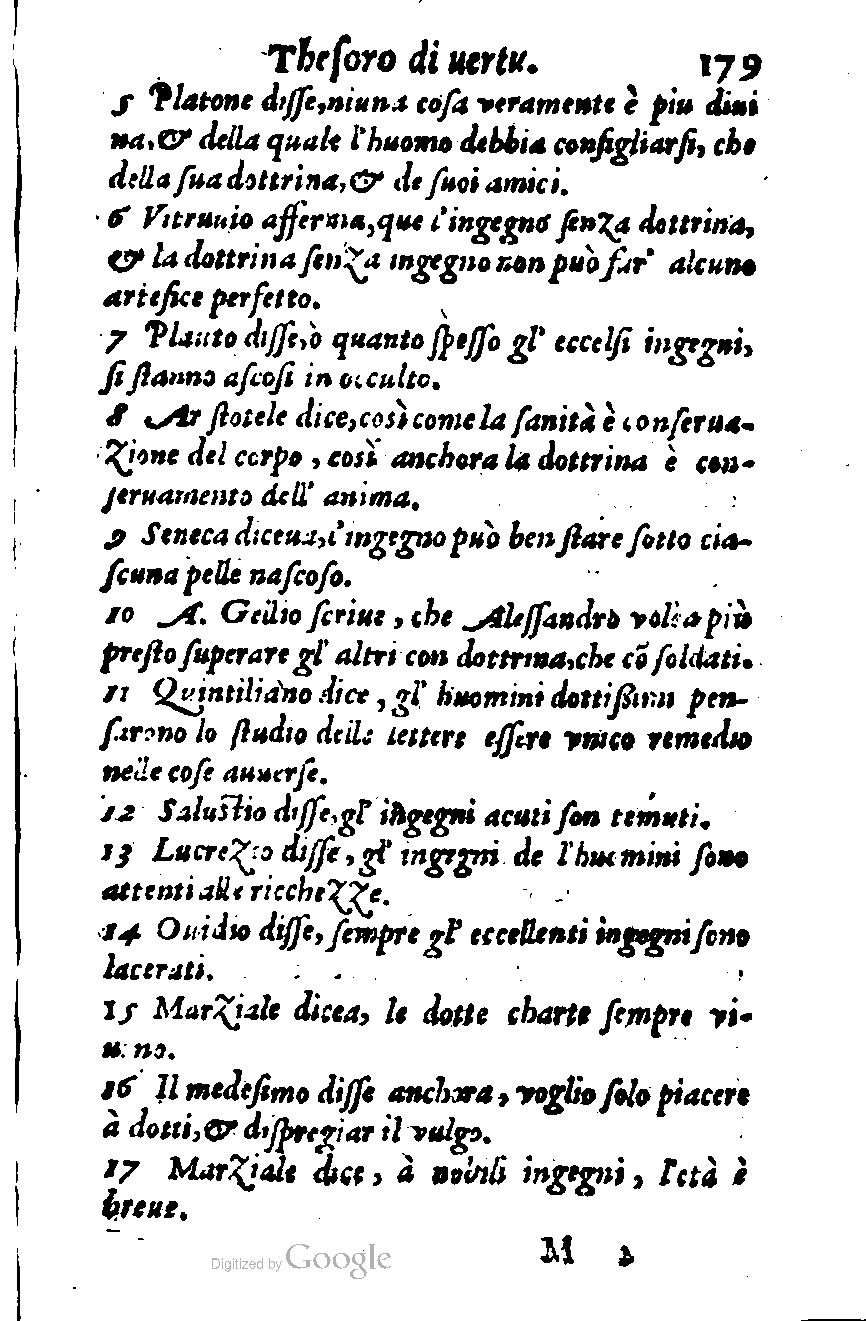 Theſoro di uertu. 179
5 Platone diſſe, niuna coſa veramente è piu diui
na, & della quale l'huomo debbia conſigliarſi, che
della ſua dottrina, & de ſuoi amici.
6 Vitruuio afferma, que l'ingegno ſenza dottrina,
& la dottrina ſenza ingegno non può far' alcuno
artefice perfetto.
7 Plauto diſſe, ò quanto ſpeſſo gl' eccelſi ingegni,
ſi ſtanno aſcoſi in occulto.
8 Ariſtotele dice, così come la ſanità è conſerua-
zione del corpo, così anchora la dottrina è con-
ſeruamento dell' anima.
9 Seneca diceua, l'ingegno può ben ſtare ſotto cia-
ſcuna pelle naſcoſo.
10 A. Gellio ſcriue, che Aleſſandro volea più
preſto ſuperare gl' altri con dottrina, che cõ ſoldati.
11 Quintiliano dice, gl' huomini dottißimi pen-
ſarono lo ſtudio delle lettere eſſere vnico remedio
nelle coſe auuerſe.
12 Saluſtio diſſe, gl' ingegni acuti ſon temuti.
13 Lucrezio diſſe, gl' ingegni de l'huomini ſono
attenti alle ricchezze.
14 Ouidio diſſe, ſempre gl' eccellenti ingegni ſono
lacerati.
15 Marziale dicea, le dotte charte ſempre vi-
uono.
16 Il medeſimo diſſe anchora, voglio ſolo piacere
à dotti, & diſpregiar il vulgo.
17 Marziale dice, à nobili ingegni, l'età è
breue.
M
Digitized by Google